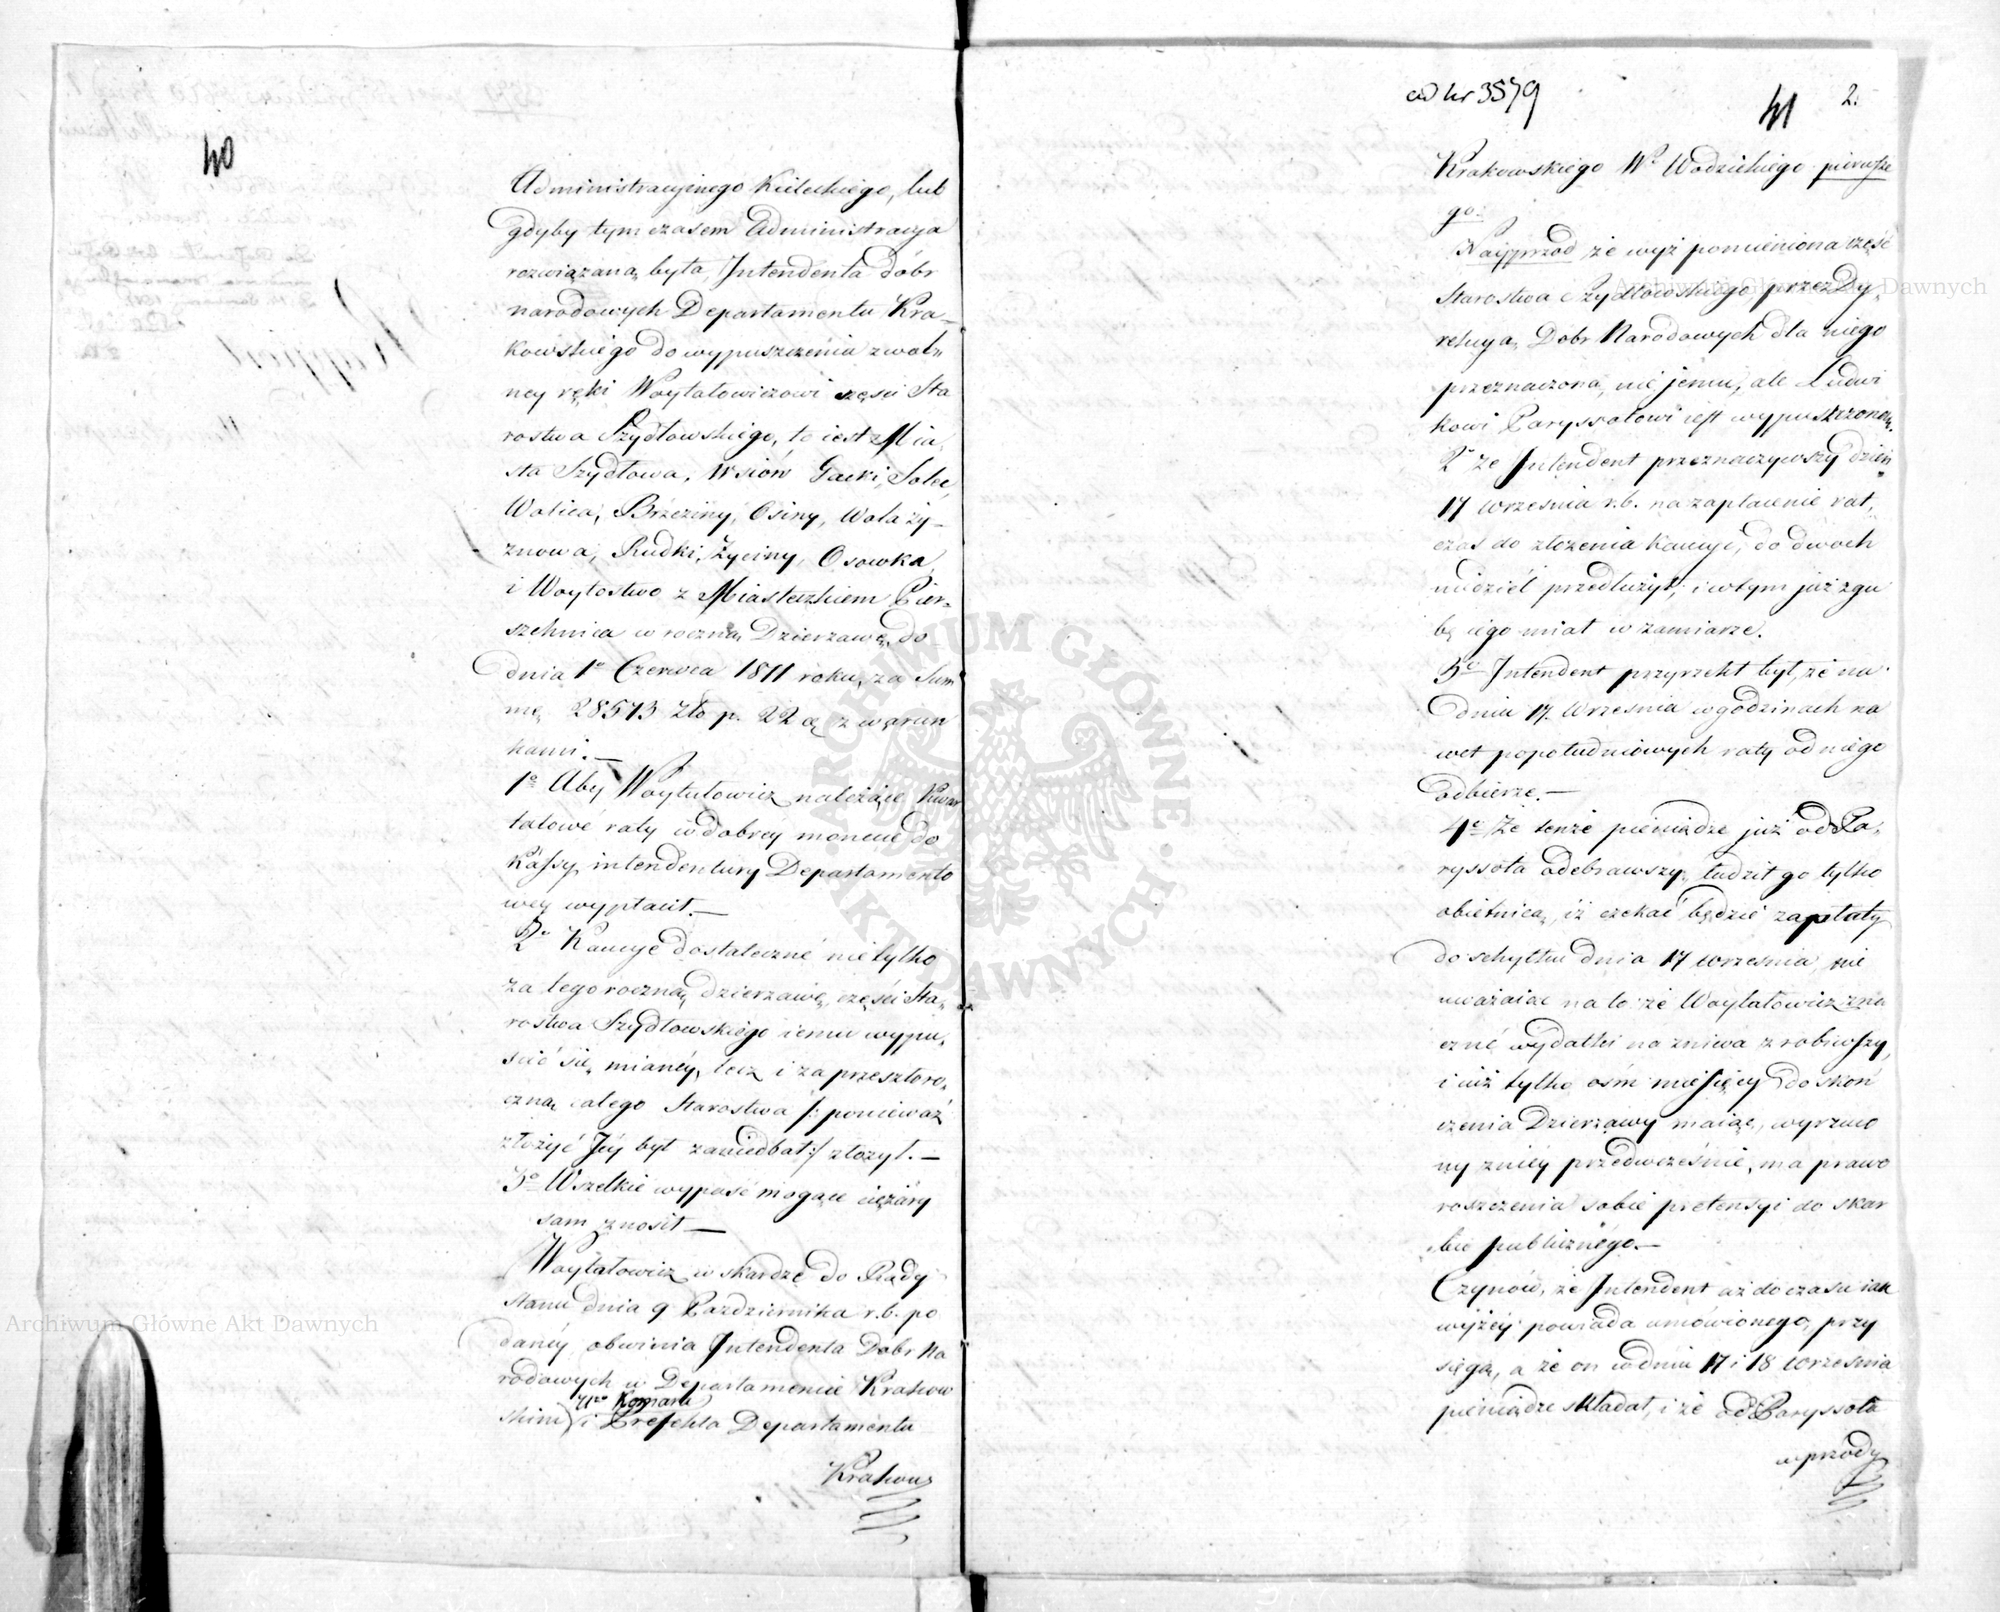 40
Administracyinego Kieleckiego, lub
gdyby tym czasem Administracya
rozwiązaną była, Intendenta dóbr
narodowych Departamentu Kra-
kowskiego do wypuszczenia z wol-
ney ręki Woytałowiczowi części Sta
rostwa Szydłowskiego, to iest z Mia-
sta Szydłowa, Wsiów Gacki, Solec
Wolica, Brzeziny, Osiny, Wola ży-
znowa, Rudki, Życiny, Osowka
i Woytostwo z Miasteczkiem Pier-
szchnica w roczną Dzierzawę, do
dnia 1o Czerwca 1811 roku, za Sum
mę 28573 Złp. 22 g. z warun
kami.—
1o Aby Woytułowicz należące Kwar
talowe raty w dobrey monecie do
Kassy intendentury Departamento
wey wypłacił.—
2o Kaucye dostateczne nie tylko
za tegoroczną dzierzawę części Sta-
rostwa Szydłowskiego iemu wypu-
scić się mianéy, lecz i za przeszłoro-
czną całego Starostwa /: ponieważ
złożyć Jéy był zaniedbał :/ złożył.—
3o Wszelkie wypaść mogące ciężary
sam znosił—
Woytałowicz w skardze do Rady
Stanu dnia 9 Pazdziernika r.b. po
danéy, obwinia Intendenta Dobr Na
rodowych w Departamencie Krakow
Komara
skim i Prefekta Departamentu
Krakows
ad Nr 3579
41
2.
Krakowskiego Wo Wodzickiego pierwsze
go:
Nayprzód że wyż pomieniona część
Starostwa Szydłowskiego przez Dy-
rekcyą Dobr Narodowych dla niego
przeznaczona, nie jemu, ale Ludwi
kowi Paryssotowi iest wypuszczoną.
2o że Intendent przeznaczywszy dzień
17 Września r.b. na zapłacenie rat,
czas do złożenia Kaucyi, do dwoch
niedziel przedłużył, i w tym już zgu
bę iego miał w zamiarze.
3o Intendent przyrzekł był, że na
dniu 17. Września w godzinach na
wet popołudniowych ratę od niego
odbierze.—
4o Że tenże pieniądze już od Pa-
ryssota odebrawszy, łudził go tylko
obietnicą, iż czekać będzie zapłaty
do schyłku dnia 17 Września, nie
uważaiąc na to że Woytałowicz zna
czne wydatki na żniwa zrobiwszy,
i iuż tylko ośm miesięcy do skoń
czenia Dzierzawy maiąc, wyrzuco
ny z niéy przedwcześnie, ma prawo
roszczenia sobie pretensyi do skar
bu publicznego.—
Czynów, że Intendent aż do czasu iak
wyżéy powiada umówionego, przy
sięgą, a że on w dniu 17 i 18 Września
pieniądze składał, i że od Paryssota
wprzódy
Archiwum Główne Akt Dawnych
Archiwum Główne Akt Dawnych
ARCHIWUM GŁÓWNE AKT DAWNYCH